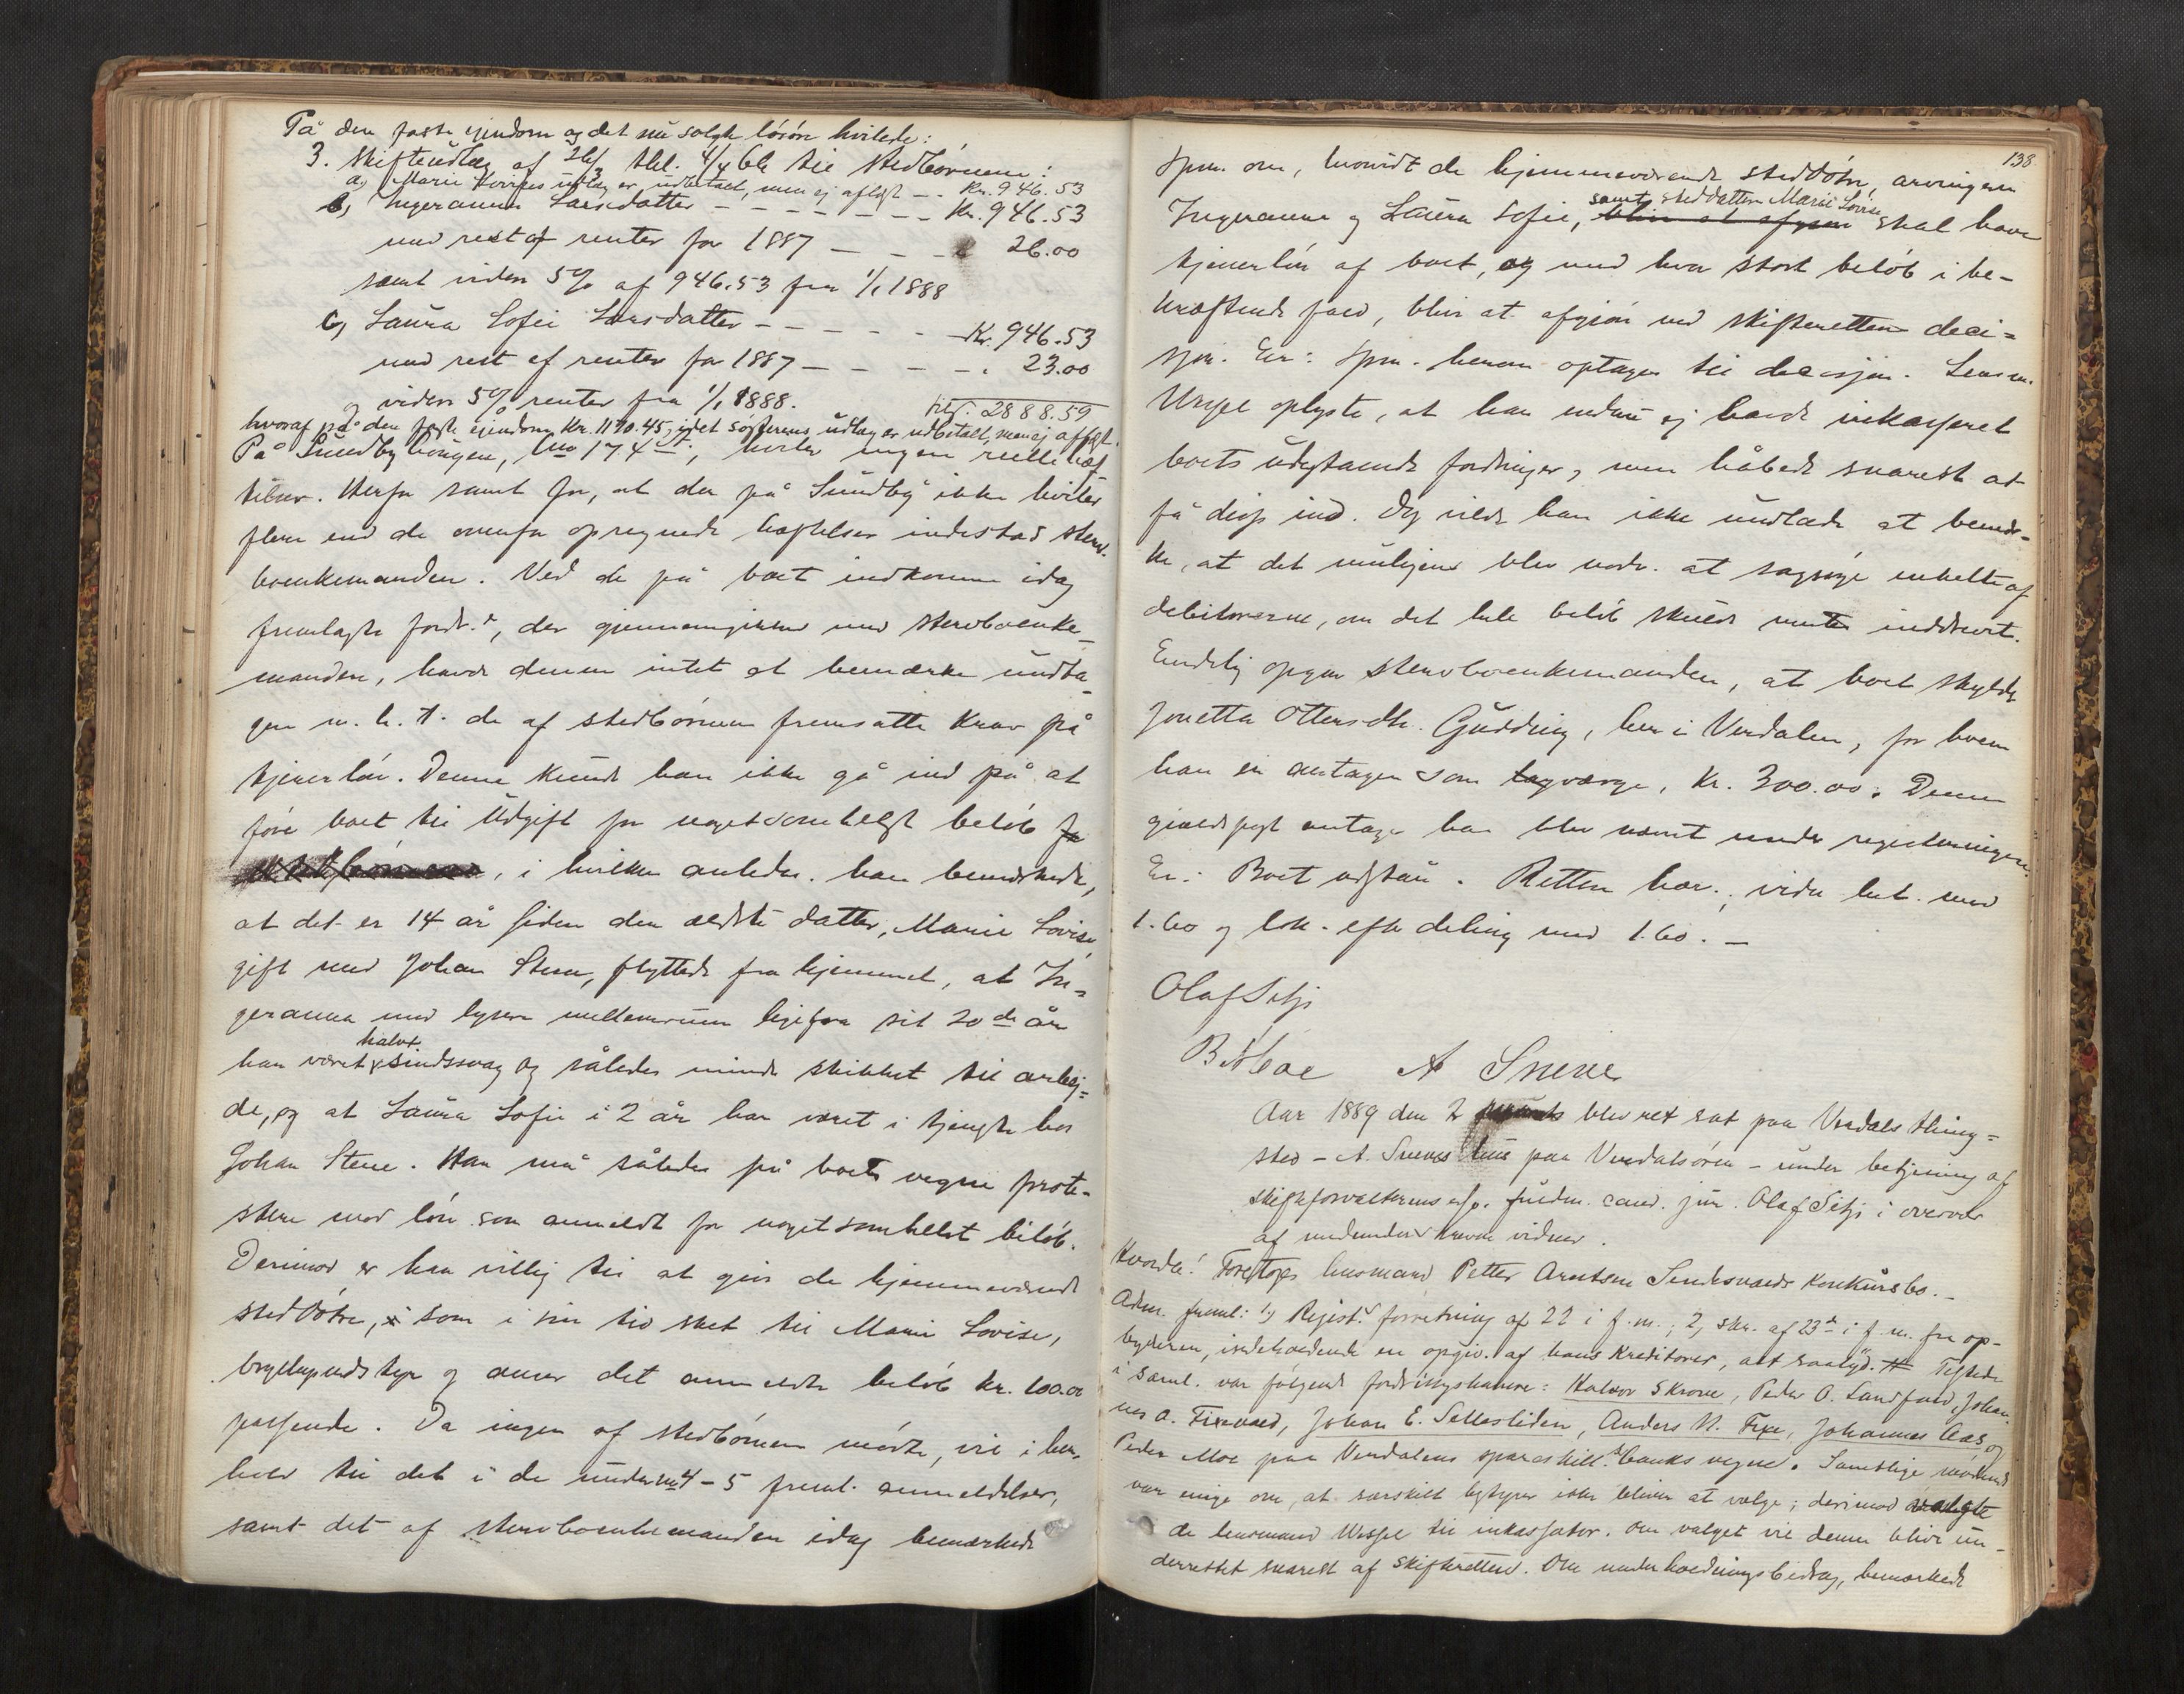 På den faste ejendom og det nu solgte løsøre hvilede:
3. Skifteudlæg af 26/3 thl. 4/4 66 til stedbørnene:
a, Marie Lovises udlæg er udbetalt, men ej aflyst - - Kr. 946.53
b, Ingeranna Larsdatter - - - - - - - Kr. 946.53
med rest af renter for 1887 - - - 26.00
samt videre 5% af 946.53 fra 1/1 1888
c, Laura Sofie Larsdatter - - - - - Kr. 946.53
med rest af renter for 1887 - - - - 23.00
og videre 5% renter fra 1/1 1888. Kr. 2888.59
hvoraf på den faste ejendom Kr. 1170.45, idet søsterens udlæg er udbetalt, men ej aflyst.
På Sundby vangen, lno 174, hviler ingen reelle hæf
telser. Herfor samt for, at der på Sundby ikke hviler
flere end de ovenfor opregnede hæftelser indestod sterv-
boenkemanden. Ved de på boet indkomne idag
fremlagte fordr.r, der gjennemgikkes med stervboenke-
manden, havde denne intet at bemærke undta-
gen m. h. t. de af stedbørnene fremsatte krav på
tjenerløn. Denne kunde han ikke gå ind på at
føre boet til Udgift for noget somhelst beløb
, i hvilken anledn. han bemærkede,
at det er 14 år siden den ældste datter, Marie Lovise
gift med Johan Stene, flyttede fra hjemmet, at In-
geranna med lysere mellemrum ligefra sit 20de år
halvt
har været sindssvag og således mindre skikket til arbej-
de, og at Laura Sofie i 2 år har været i tjeneste hos
Johan Stene. Han må således på boets vegne prote-
stere mod løn som anmeldt for noget somhelst beløb.
Derimod er han villig til at give de hjemmeværende
steddøtre, som i sin tid sket til Marie Lovise,
bryllupsudstyr og anser det anmeldte beløb kr. 100.00
passende. Da ingen af stedbørnene mødte, vil i hen-
hold til det i de under no 4 - 5 freml. anmeldelser,
samt det af stervboenkemanden idag bemærkede
138
spm. om, hvorvidt de hjemmeværende steddøtre, arvingerne
samt steddatteren Marie Lovise
Ingeranna og Laura Sofie, blir at afgjøre skal have
tjenerløn af boet, og med hvor stort beløb i be-
kræftende fald, blir at afgjøre ved skifterettens deci-
sjon. Er: Spm. herom optages til decisjon. Lensm.
Wessel oplyste, at han endnu ej havde inkasseret
boets udestaaende fordringer, men håbede snarest at
få disse ind. Dog vilde han ikke undlade at bemær-
ke, at det muligens blev nødv. at sagsøge enkelte af
debitorerne, om det hele beløb skulde ventes inddrevet.
Endelig opgav stervboenkemanden, at boet skylder
Jonetta Ottersdtr. Gudding, her i Verdalen, for hvem
han er antagen som lagværge, Kr. 300.00. Denne
gjældspost antager han blev nævnt under registreringen.
Er: Boet udstår. Retten hæv.; vidn. bet. med
1.60 og lok. efter deling med 1.60. -
Olaf Sitje
B Moe A Snexe
Aar 1889 den 2 blev ret sat paa Verdals thing-
sted - A. Snexes hus paa Verdalsøren - under betjening af
skifteforvalterens e/o. fuldm. cand. jur. Olaf Sitje i overvær
af nedenundersrevne vidner.
Hvorda: Foretages husmand Petter Arntsen Sendesvalds konkursbo. -
Adm. freml: 1, Regist.s forretning af 22 i f. m.; 2, skr. af 23de i f. m. fra op-
byderen, indeholdende en opgiv. af hans kreditorer, alt saalyd. # Tilstede
i saml. var følgende fordringshavere: Halvor Skrove, Peder O. Landfald, Johan-
nes A. Fixevald, Johan E. Selleslien, Anders N. Fixe, Johannes Aas og
Peder Moe paa Verdalens spareskill.s banks vegne. Samtlige mødende
var enige om, at særskilt bestyrer ikke bliver at vælge; derimod valgte
de lensmand Wessel til inkassator. Om valget vil denne blive un-
derrettet snarest af skifteretten. Om underholdningsbidrag, bemærkede